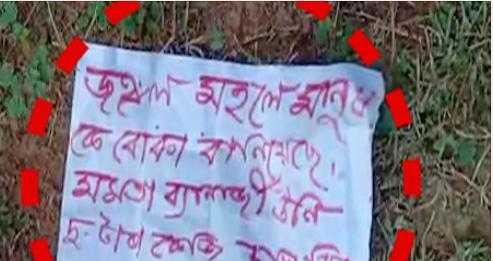 জঙ্গল মহলে মানুষ
কে বোকা বানিয়েছে,
মমতা ব্যানার্জী উনি
দু টাকা